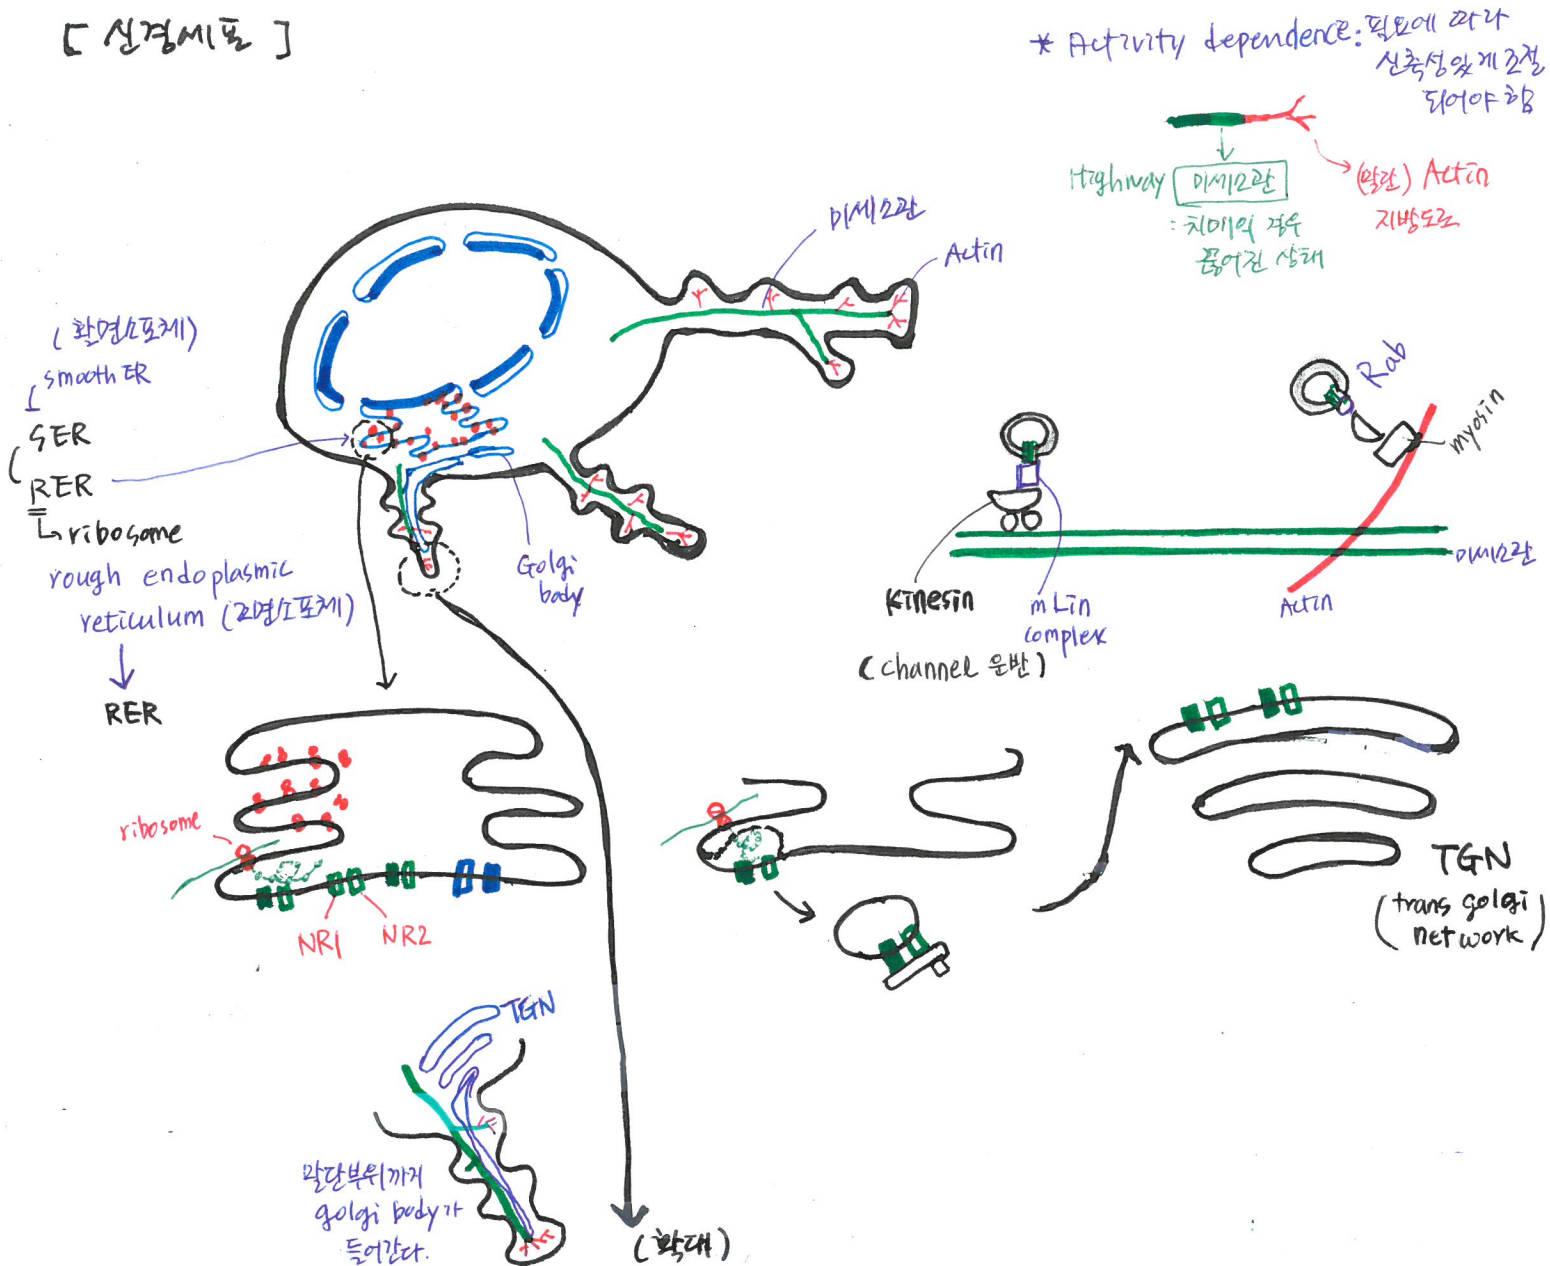 [ 신경세포 ]
* Activity dependence: 필요에 따라
신축성있게 조절
되어야 함
Highway 미세소관
: 치매의 경우
끊어진 상태
(말단) Actin
지방도로
미세소관
Actin
(활면소포체)
smooth ER
SER
RER
ribosome
rough endoplasmic
reticulum (조면소포체)
RER
Golgi
body
Rab
myosin
미세소관
Kinesin
mLin
complex
Actin
(channel 운반)
ribosome
NR1
NR2
TGN
(trans golgi
network)
TGN
말단부위까지
golgi body가
들어간다.
(확대)